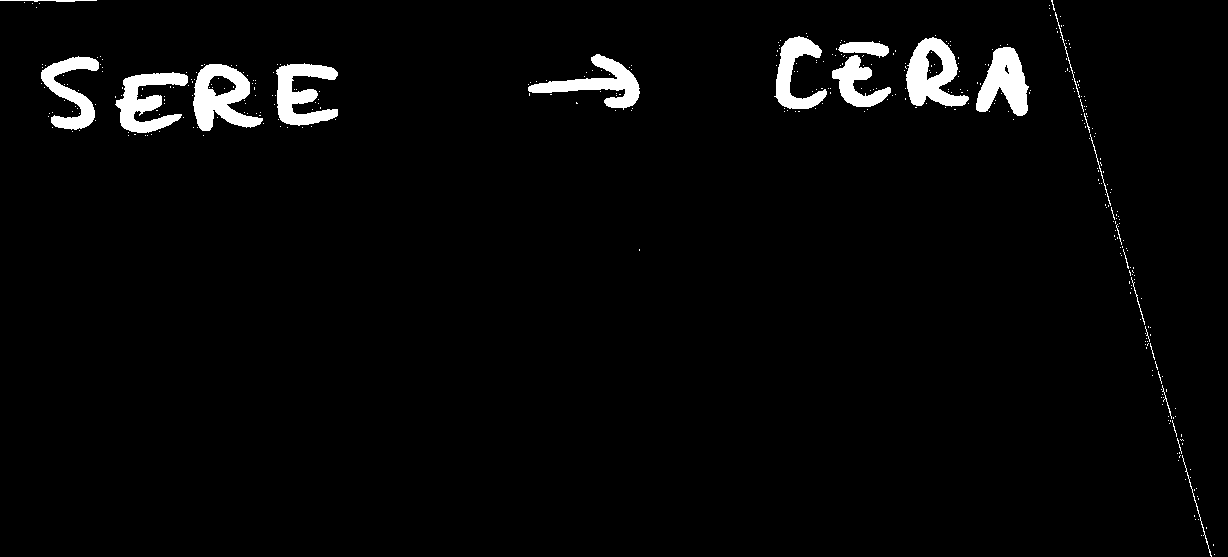 SERE → CERA